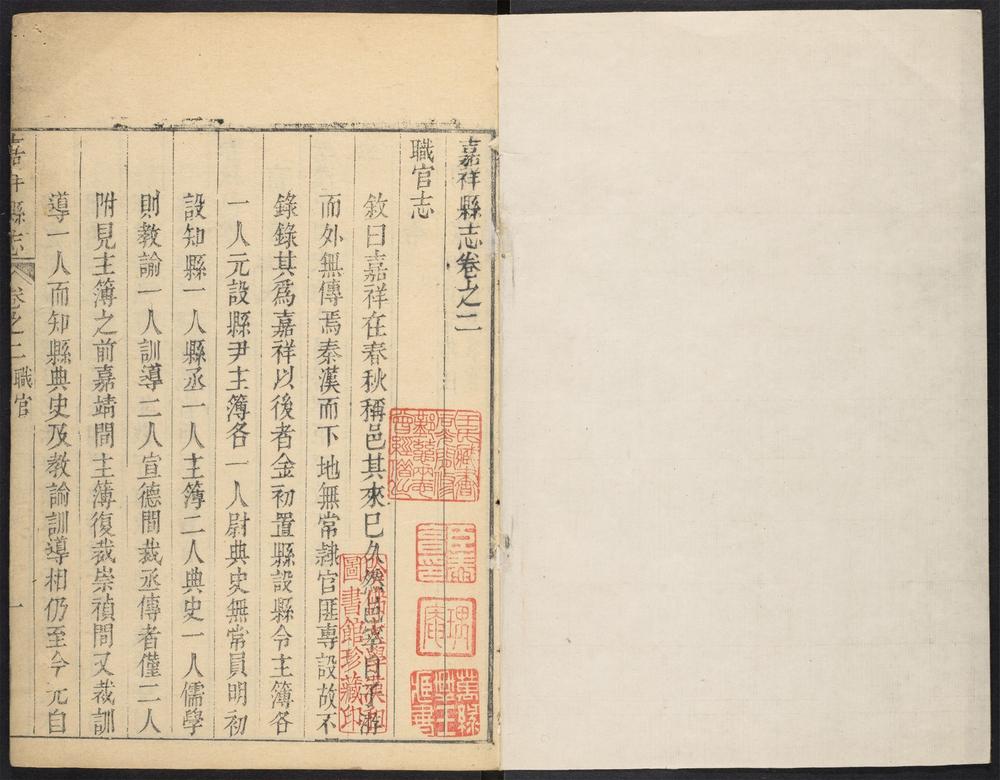 嘉祥縣志卷之二
職官志
敘曰嘉祥在春秋稱邑其來已久然邑宰自子游
而外無傳焉秦漢而下地無常隸官匪專設故不
錄錄其爲嘉祥以後者金初置縣設縣令主簿各
一人元設縣尹主簿各一人尉典史無常員明初
設知縣一人縣丞一人主簿二人典史一人儒學
則教諭一人訓導二人宣德間裁丞傳者僅二人
附見主簿之前嘉靖間主簿復裁崇禎間又裁訓
導一人而知縣典史及教諭訓導相仍至今元自
縣志 卷之二 職官 一
圖書館珍藏印